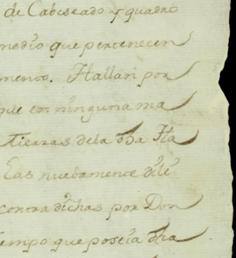 de Cabiseado y quadro
medio que pertenecen
mento. Hallari por
que en ninguna ma
tierras dela
Eas nuebamente
contradichas por Don
tiempo que poseía dha